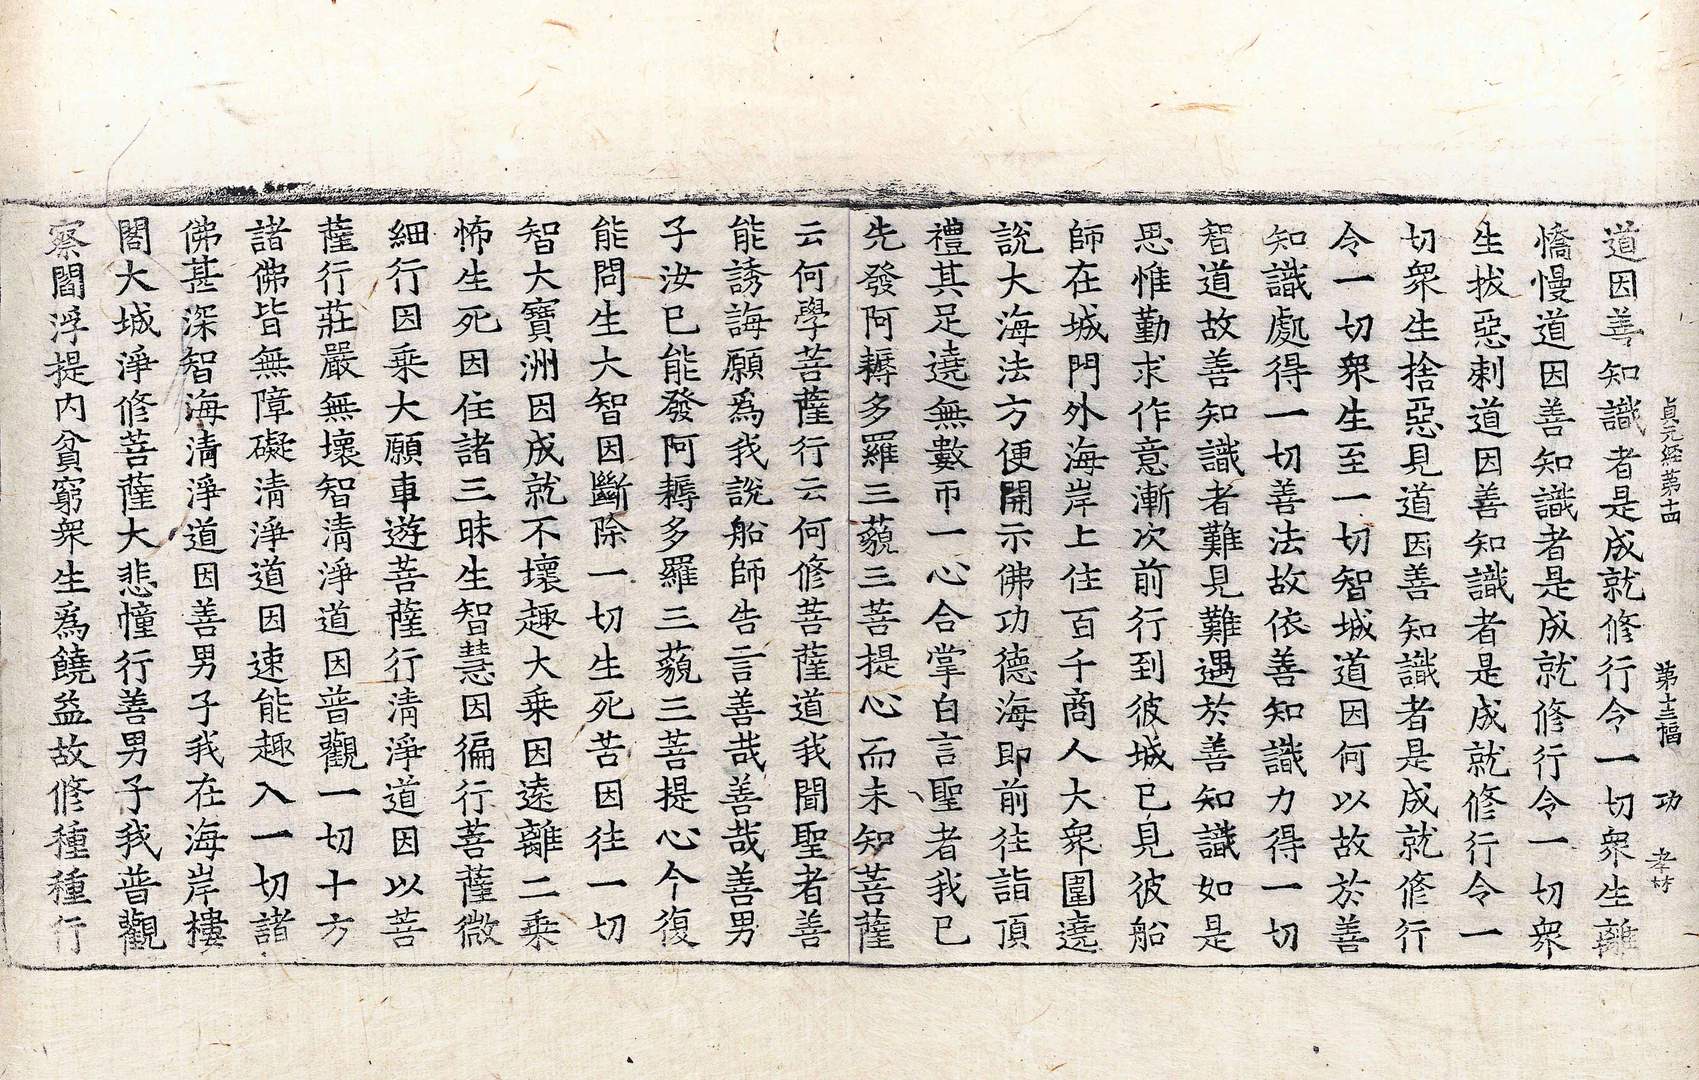 貞元経第十四 第十三幅 功 孝坊
道因善知識者是成就修行令一切衆生離
憍慢道因善知識者是成就修行令一切衆
生拔惡刺道因善知識者是成就修行令一
切衆生捨惡見道因善知識者是成就修行
令一切衆生至一切智城道因何以故於善
知識處得一切善法故依善知識力得一切
智道故善知識者難見難遇於善知識如是
思惟勤求作意漸次前行到彼城已見彼船
師在城門外海岸上住百千商人大衆圍遶
說大海法方便開示佛功德海即前往詣頂
禮其足遶無數帀一心合掌白言聖者我已
先發阿耨多羅三藐三菩提心而未知菩薩
云何學菩薩行云何修菩薩道我聞聖者善
能誘誨願爲我說船師告言善哉善哉善男
子汝已能發阿耨多羅三藐三菩提心今復
能問生大智因斷除一切生死苦因往一切
智大寶洲因成就不壞趣大乘因遠離二乘
怖生死因住諸三昧生智慧因徧行菩薩微
細行因乘大願車遊菩薩行清淨道因以菩
薩行莊嚴無壞智清淨道因普觀一切十方
諸佛皆無障礙清淨道因速能趣入一切諸
佛甚深智海清淨道因善男子我在海岸樓
閣大城淨修菩薩大悲幢行善男子我普觀
察閻浮提内貧窮衆生爲饒益故修種種行